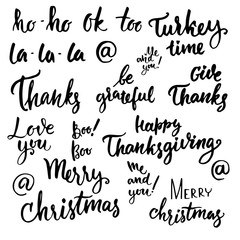 ho-ho ok too Turkey
time
la-la-la @ Me
and
you!
Thanks be
grateful Give
Thanks
Love
you Boo!
Boo Happy
Thanksgiving
@ Merry
christmas Me
and
you! @
Merry
christmas